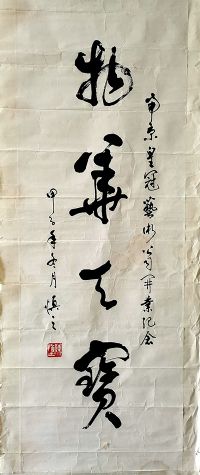 南京皇冠藝術公司開業紀念
物華天寶
甲子年冬月 慎之